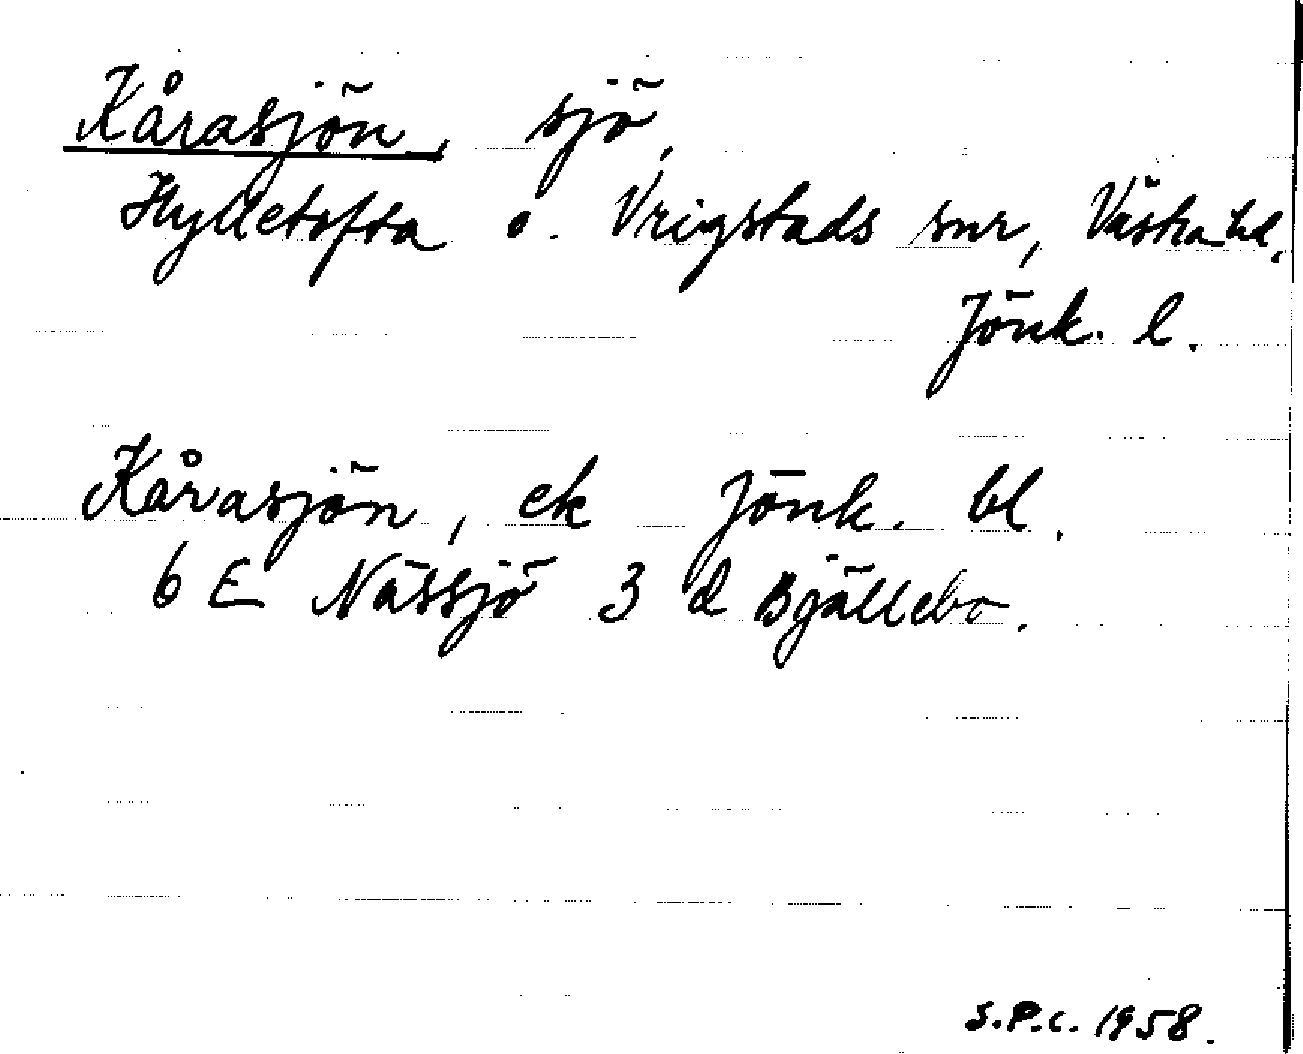 Kårasjön, sjö,
Hylletofta o. Vrigstads snr, Västra hd,
Jönk. l.
Kårasjön, ek Jönk. bl.
6 E Nässjö 3 d Bjällebo.
S.P.C. 1958.